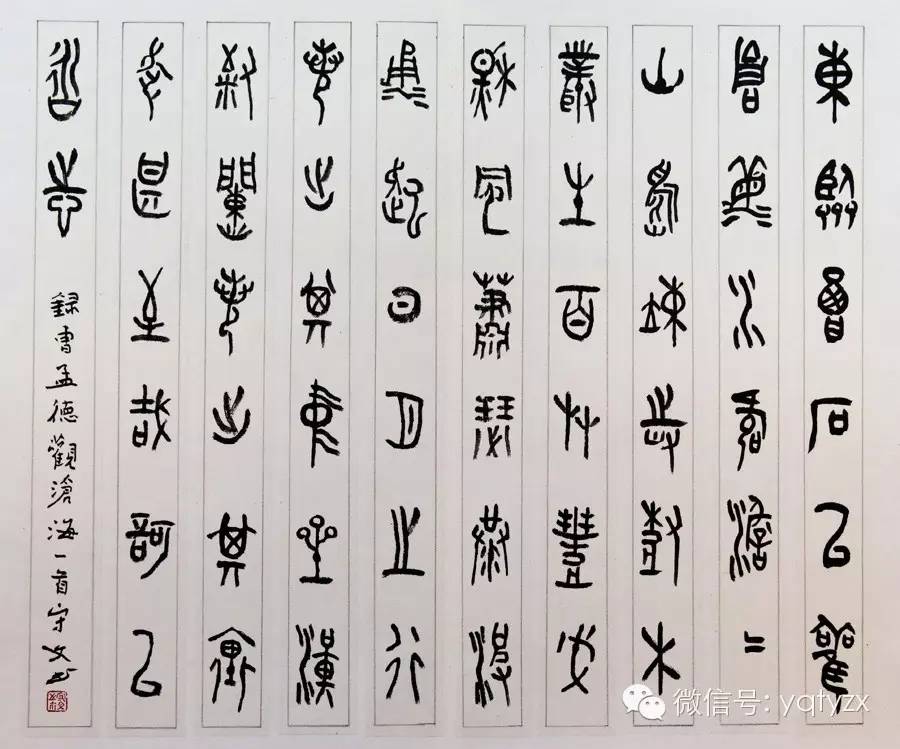 東臨碣石以觀
滄海水何澹=
山島竦峙樹木
叢生百草豐茂
秋風蕭瑟洪波
涌起日月之行
若出其中星漢
粲爛若出其裏
幸甚至哉歌以
詠志
錄曹孟德觀滄海一首守
微信号: yqtyzx